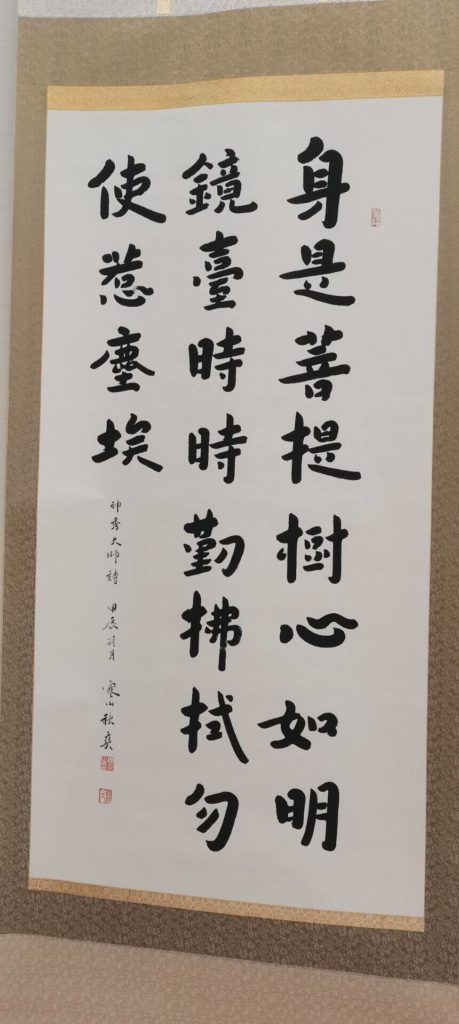 身是菩提樹心如明
鏡臺時時勤拂拭勿
使惹塵埃
神秀大師詩 甲辰荷月 寒山秋爽